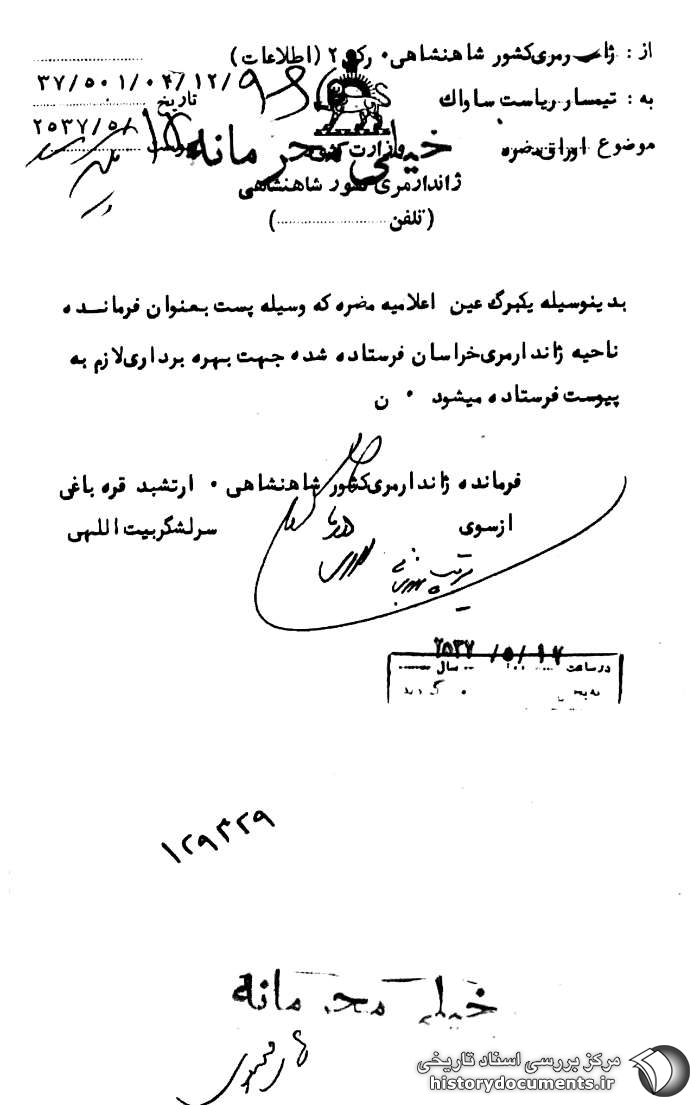 از : ژاندارمری کشور شاهنشاهی ۰ رکن ۲ (اطلاعات)
۳۷/۵۰۱/۰۴/۱۲/
به : تیمسار ریاست ساواک
تاریخ
۲۵۳۷/۵/
موضوع اوراق مضره
خیلی محرمانه
وزارت کشور
ژاندارمری کشور شاهنشاهی
(تلفن ..........)
بدینوسیله یکبرگ عین اعلامیه مضره که وسیله پست بعنوان فرمانده
ناحیه ژاندارمری خراسان فرستاده شده جهت بهره برداری لازم به
پیوست فرستاده میشود ۰ ن
فرمانده ژاندارمری کشور شاهنشاهی ۰ ارتشبد قره باغی
ازسوی سرلشگر بیت اللهی
۲۵۳۷/۵/۱۷
در ساعت سال
گردید
۱۲۹۳۲۹
خیلی محرمانه
مرکز بررسی اسناد تاریخی
historydocuments.ir